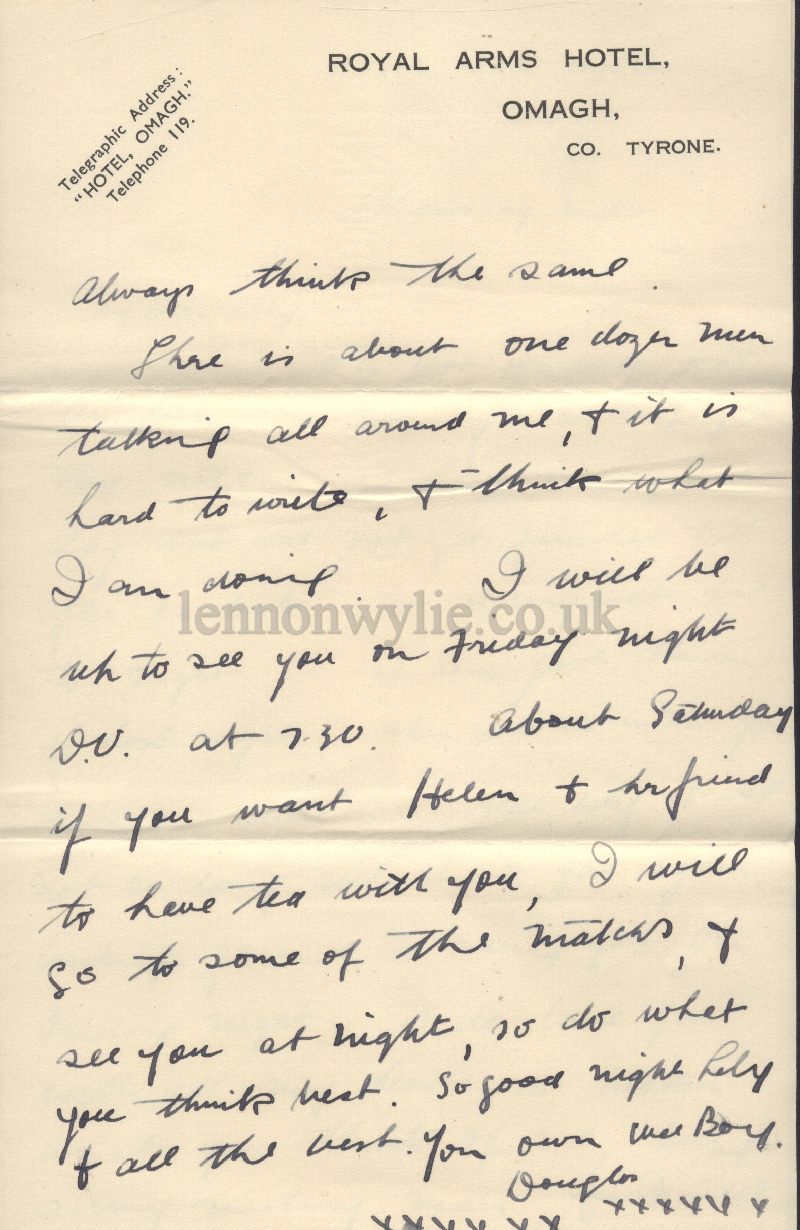 ROYAL ARMS HOTEL,
OMAGH,
CO. TYRONE.
Telegraphic Address:
"HOTEL, OMAGH."
Telephone 119.
Always think the same.
There is about one dozen men
talking all around me, + it is
hard to write, + think what
I am doing. I will be
up to see you on Friday night
D.V. at 7.30. About Saturday
if you want Helen + her friend
to have tea with you, I will
go to some of the matches, +
see you at night, so do what
you think best. So good night
+ all the best. Your own wee Boy.
Douglas
xxxxxx x
xxxxx xx
lennonwylie.co.uk